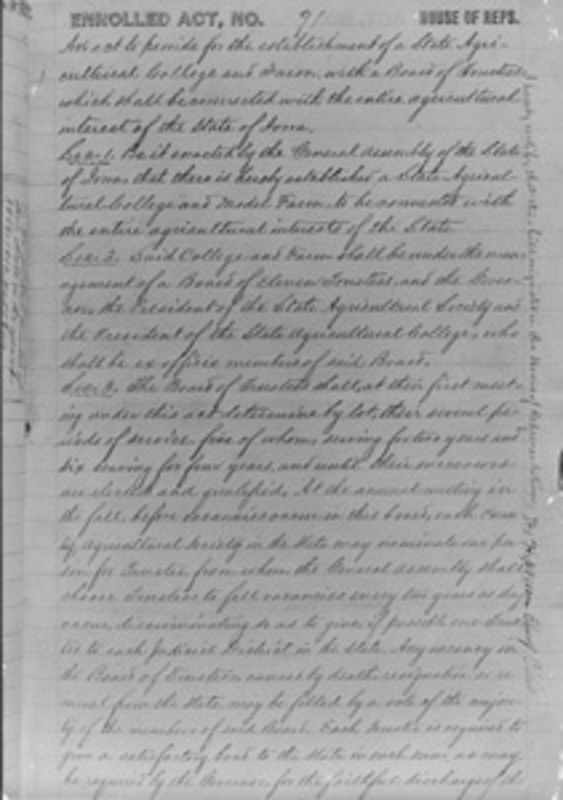 ENROLLED ACT, NO. 91 HOUSE OF REPS.
An act to provide for the establishment of a State Agri-
cultural College and Farm, with a Board of Trustees
which shall be connected with the entire agricultural
interest of the State of Iowa.
Sec. 1. Be it enacted by the General Assembly of the State
of Iowa, that there is hereby established a State Agricul-
tural College and Model Farm, to be connected with
the entire agricultural interests of the State
Sec. 2. Said College and Farm shall be under the man-
agement of a Board of Eleven Trustees, and the Gover-
nor, the President of the State Agricultural Society and
the President of the State Agricultural College, who
shall be ex officio members of said Board.
Sec. 3. The Board of Trustees shall, at their first meet-
ing under this act determine by lot, their several pe-
riods of service, five of whom, serving for two years and
six serving for four years, and until their successors
are elected and qualified. At the annual meeting in
the fall, before vacancies occur in this board, each coun-
ty Agricultural Society in the State may nominate one per-
son for Trustee, from whom the General Assembly shall
choose Trustees to fill vacancies every two years as they
occur, discriminating so as to give, if possible one Trus-
tee to each Judicial District in the State. Any vacancy in
the Board of Trustees caused by death, resignation or re-
moval from the State, may be filled by a vote of the major-
ity of the members of said Board. Each trustee is required to
give a satisfactory bond to the State in such sum as may
be required by the Governor, for the faithful discharge of the